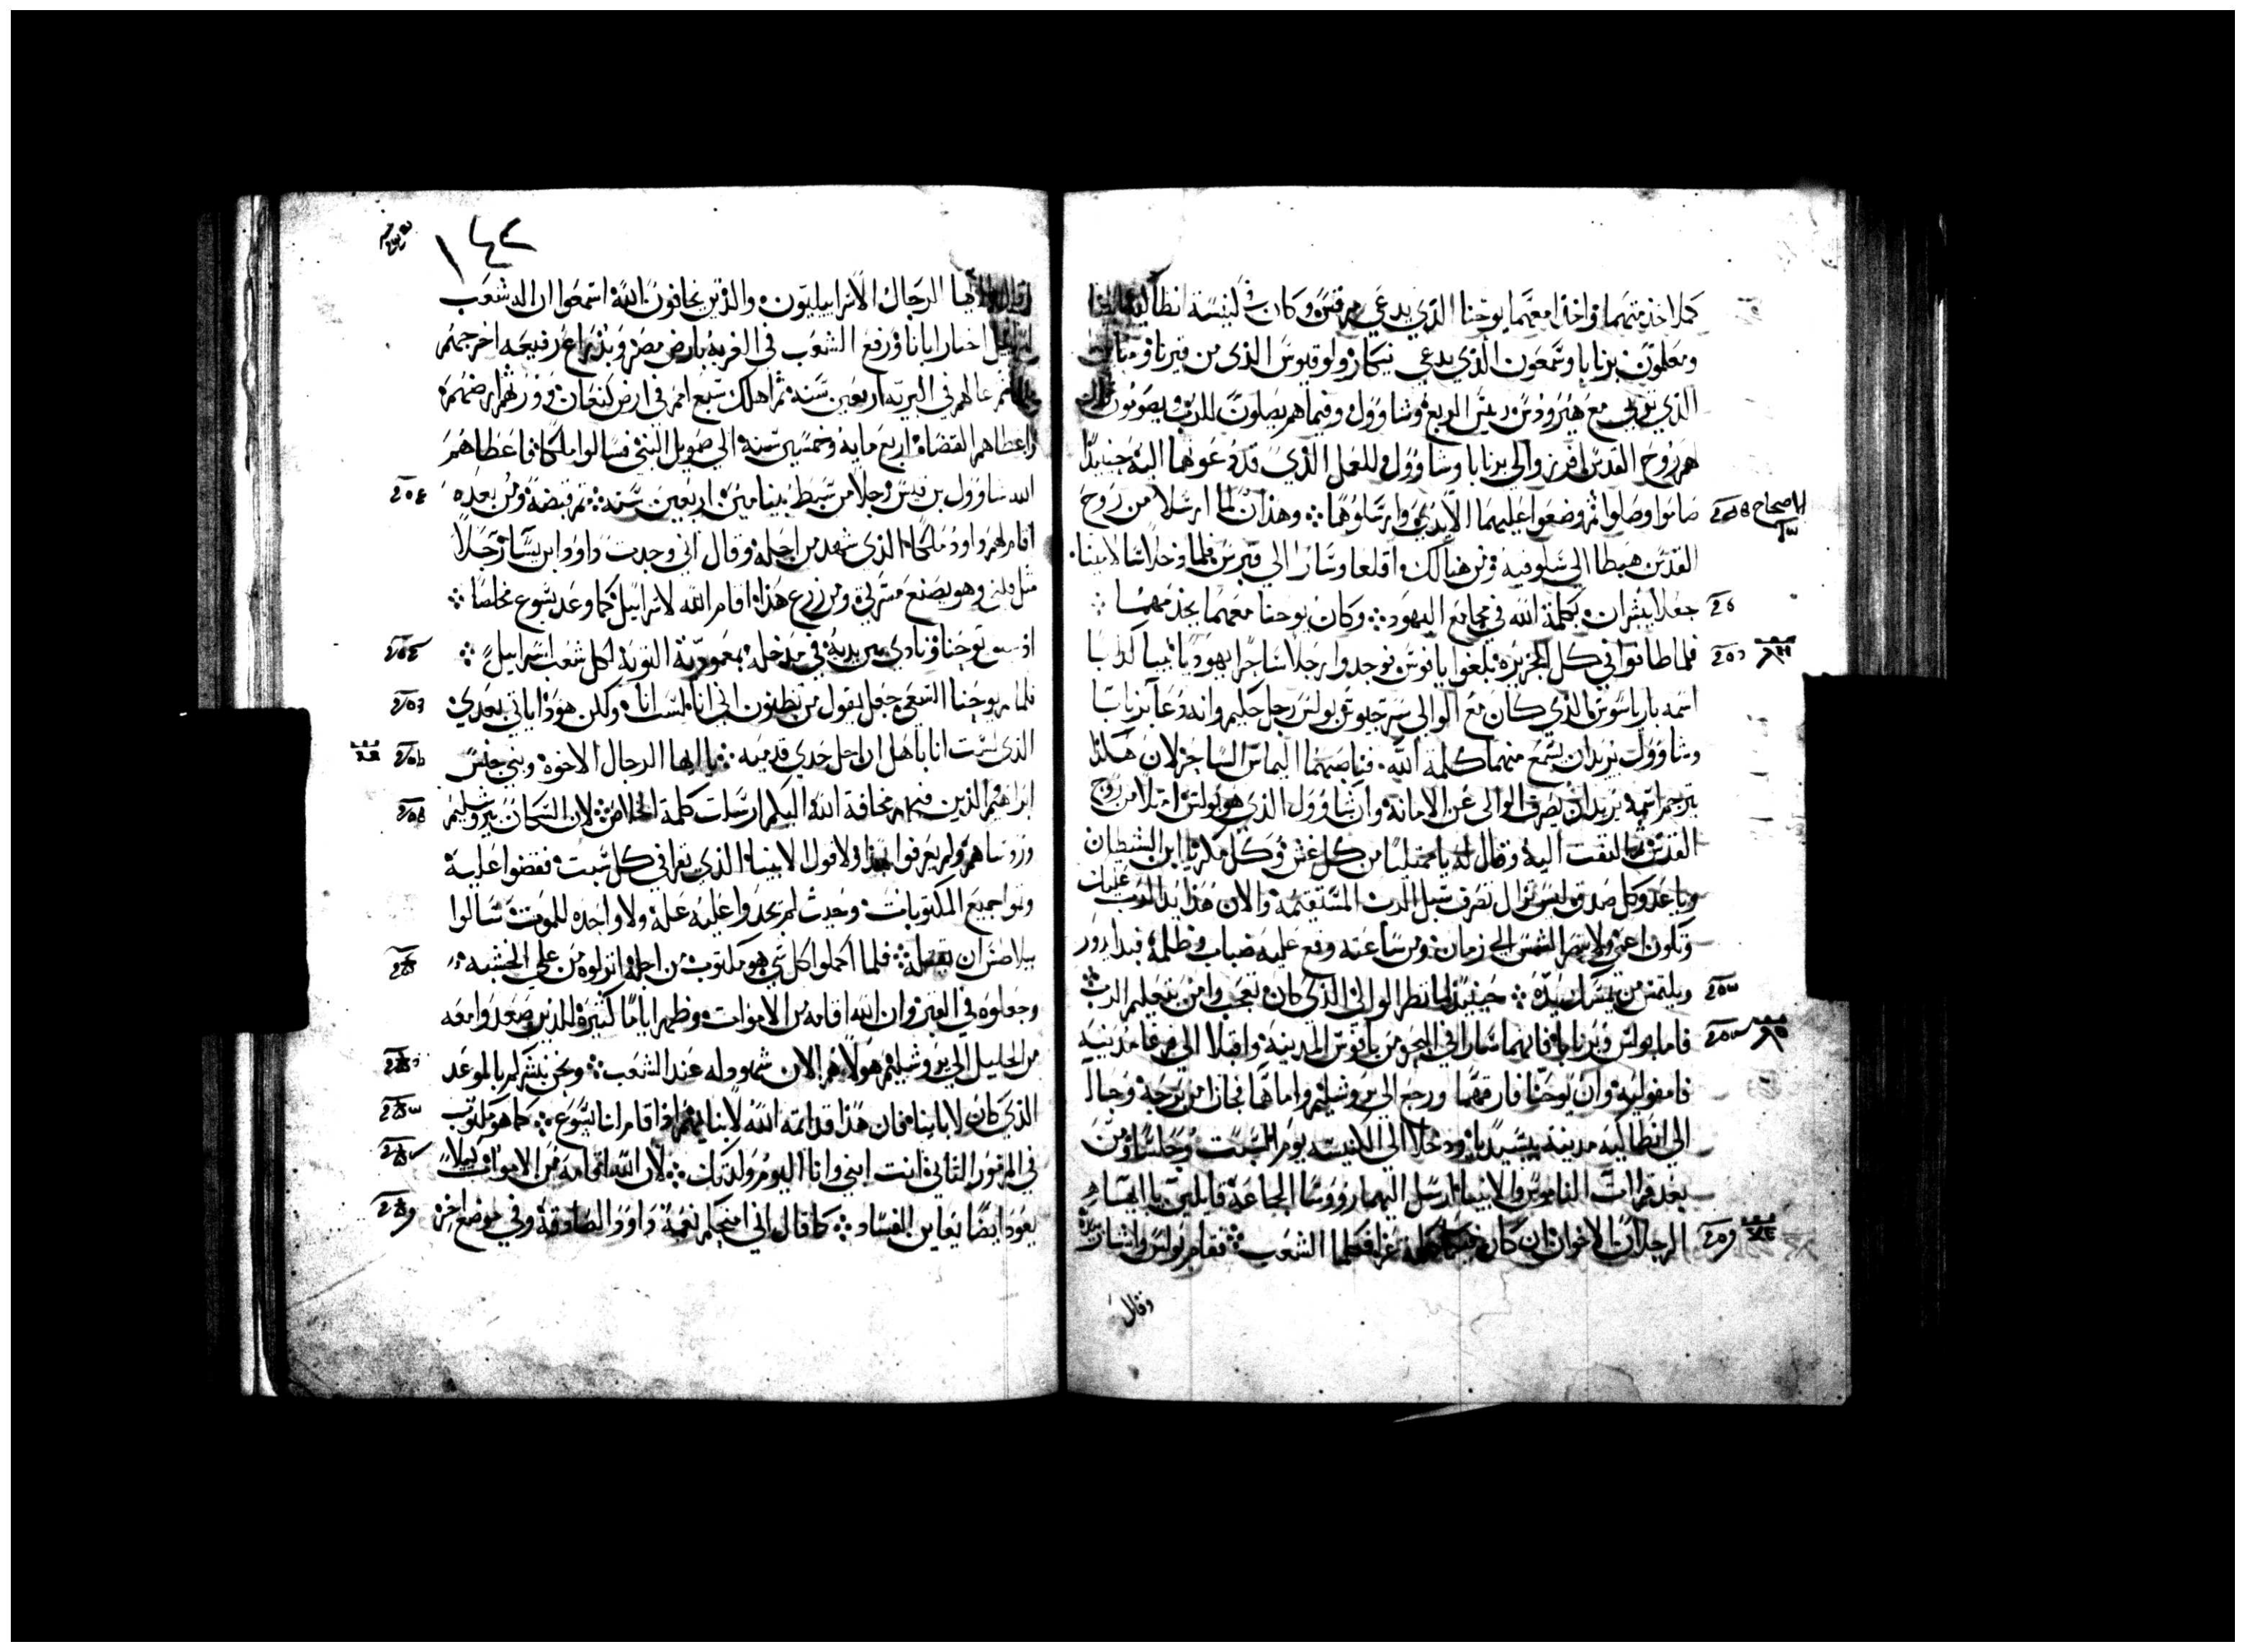 كملا خذمتهما واخذا معهما يوحنا الذي يدعي مرقس وكان في كنيسة انطاكيه
ومعلمون برنابا وشمعون الذي يدعي نيكار ولوقيوس الذي من قيرنا
الذي تربي مع هيرودس رييس الربع وشاوول وفيما هم يصلون للرب ويصومون
هم روح القدس افرزوا لي برنابا وشاوول للعمل الذي قد دعوتهما اليه حينيذ
الاصحاح
صاموا وصلوا ثم وضعوا عليهما الايدي وارسلوهما وهذان لما ارسلا من روح
القدس هبطا الي سلوقيه ومن هناك اقلعا وسارا الي قبرس فلما دخلا سالامينا
جعلا يبشران بكلمة الله في مجامع اليهود وكان يوحنا معهما يخدمهما
فلما طافوا في كل الجزيره بلغوا يافوس فوجدوا رجلا ساحرا يهوديا نبيا كدابا
اسمه بارياسوس الذي كان مع الوالي سرجيوس بولس رجل حكيم وانه دعا برنابا
وشاوول يريد ان يسمع منهما كلمة الله فناصبهما اليماس الساحر لان هكذا
يترجم اسمه يريد ان يصرف الوالي عن الامانه وان شاوول الذي هو بولس امتلا من روح
القدس التفت اليه وقال له يا ممتليا من كل غش وكل مكر يا ابن الشيطان
ويا عدو كل صدق ليس تزال تصرف سبل الرب المستقيمه والان هذا يد الرب عليك
وتكون اعمي ولا تبصر الشمس الي زمان ومن ساعته وقع عليه ضباب وظلمة فبدا يدور
ويلتمس من يمسك بيده حينيذ لما نظر الوالي الذي كان تعجب وامن بتعليم الرب
فاما بولس وبرنابا فانهما سارا في البحر من يافوس المدينه واقبلا الي برغا مدينة
فامفوليه وان يوحنا فارقهما ورجع الي يروشليم واما هما فجازا من برجه وجاا
الي انطاكيه مدينة بيسيديا ودخلا الي الكنيسه يوم السبت وجلسا ومن
بعد قراات الناموس والانبيا ارسل اليهما رووسا الجماعة قايلين يا ايها
الرجلان الاخوان ان كان عزا فكلما الشعب فقام بولس واشار بيده
وقال
١٤٢
الرجال الاسراييليون والذين يخافون الله اسمعوا ان اله شعب
اختار ابانا ورفع الشعب في الغربه بارض مصر وبذراع رفيعه اخرجهم
عالهم في البريه اربعين سنه ثم اهلك سبع امم في ارض كنعان وورثهم ارضهم
واعطاهم القضاه اربع مايه وخمسين سنه الي صمويل النبي فسالوا ملكا فاعطاهم
الله شاوول بن قيس رجلا من سبط بنيامين اربعين سنه ثم قبضه ومن بعده
اقام لهم داوود ملكا الذي شهد من اجله وقال اني وجدت داوود ابن يسا رجلا
مثل قلبي وهو يصنع مسرتي ومن زرع هذا اقام الله لاسراييل كما وعد يسوع مخلصا
اذ سبق يوحنا ونادي بين يديه في مدخله بمعمودية التوبة لكل شعب اسراييل
فلما يوحنا السعي جعل يقول من تظنون اني انا لست انا ولكن هوذا ياتي بعدي
الذي لست انا باهل ان احل حدي قدميه يا ايها الرجال الاخوه وبني جنس
ابراهيم والذين فيهم مخافة الله اليكم ارسلت كلمة الخلاص لان السكان بيروشليم
وروساهم ولم يعرفوا هذا ولا قول الانبيا الذي تقرا في كل سبت فقضوا عليه
وتموا جميع المكتوبات وحيث لم يجدوا عليه علة ولا واحده للموت سالوا
بيلاطس ان يقتله فلما اكملوا كل شي هو مكتوب من اجله انزلوه من علي الخشبه
وجعلوه في القبر وان الله اقامه من الاموات وظهر اياما كثيره للذين صعدوا معه
من الجليل الي يروشليم هولا هم الان شهود له عند الشعب ونحن نبشركم بالموعد
الذي كان لاباينا فان هذا قد اتمه الله لابنايهم اذ اقام لنا يسوع كما هو مكتوب
في المزمور الثاني انت ابني وانا اليوم ولدتك لان الله اقامه من الاموات كيلا
يعود ايضا يعاين الفساد كما قال اني امنحكم نعمة داوود الصادقة وفي موضع اخر